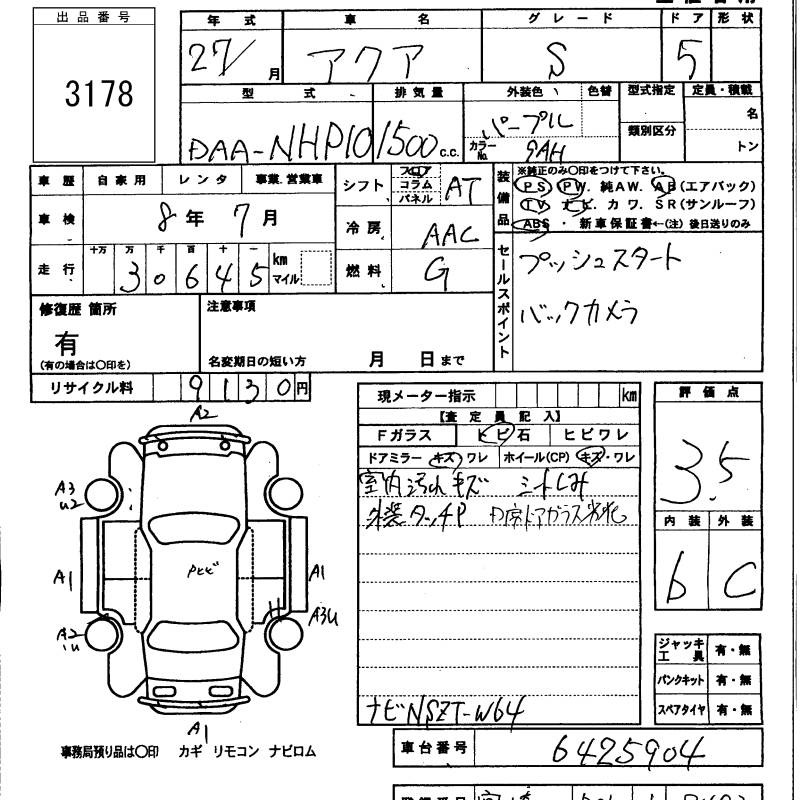 出品番号
3178
年式 車名 グレード ドア 形状
27/ 月 アクア S 5
型式 排気量 外装色 色替 型式指定 定員・積載
DAA-NHP10 1500 c.c. パープル カラーNo. 9AH 類別区分 名 トン
車歴 自家用 レンタ 事業.営業車
車検 8年 7月
走行 十万 万 千 百 十 一
3 0 6 4 5 km マイル
シフト フロア コラム パネル AT
冷房 AAC
燃料 G
装備品
※純正のみ〇印をつけて下さい。
PS. PW. 純AW. AB(エアバック)
TV ナビ. カワ. SR(サンルーフ)
ABS ・ 新車保証書←(注) 後日送りのみ
セールスポイント
プッシュスタート
バックカメラ
修復歴 箇所
有
(有の場合は〇印を)
注意事項
名変期日の短い方 月 日まで
リサイクル料 9130円
現メーター指示 km
【査定員記入】
Fガラス ヒビ石 ヒビワレ
ドアミラー キズ ワレ ホイール(CP) キズ・ワレ
室内汚れキズ シートしみ
外装タッチP
ナビNSZT-W64
評価点
3.5
内装 外装
b C
ジャッキ工具 有・無
パンクキット 有・無
スペアタイヤ 有・無
A2
A3
U2
A1
A2
Pヒビ
A1
A3U
A1
事務局預り品は〇印 カギ リモコン ナビロム
車台番号 6425904